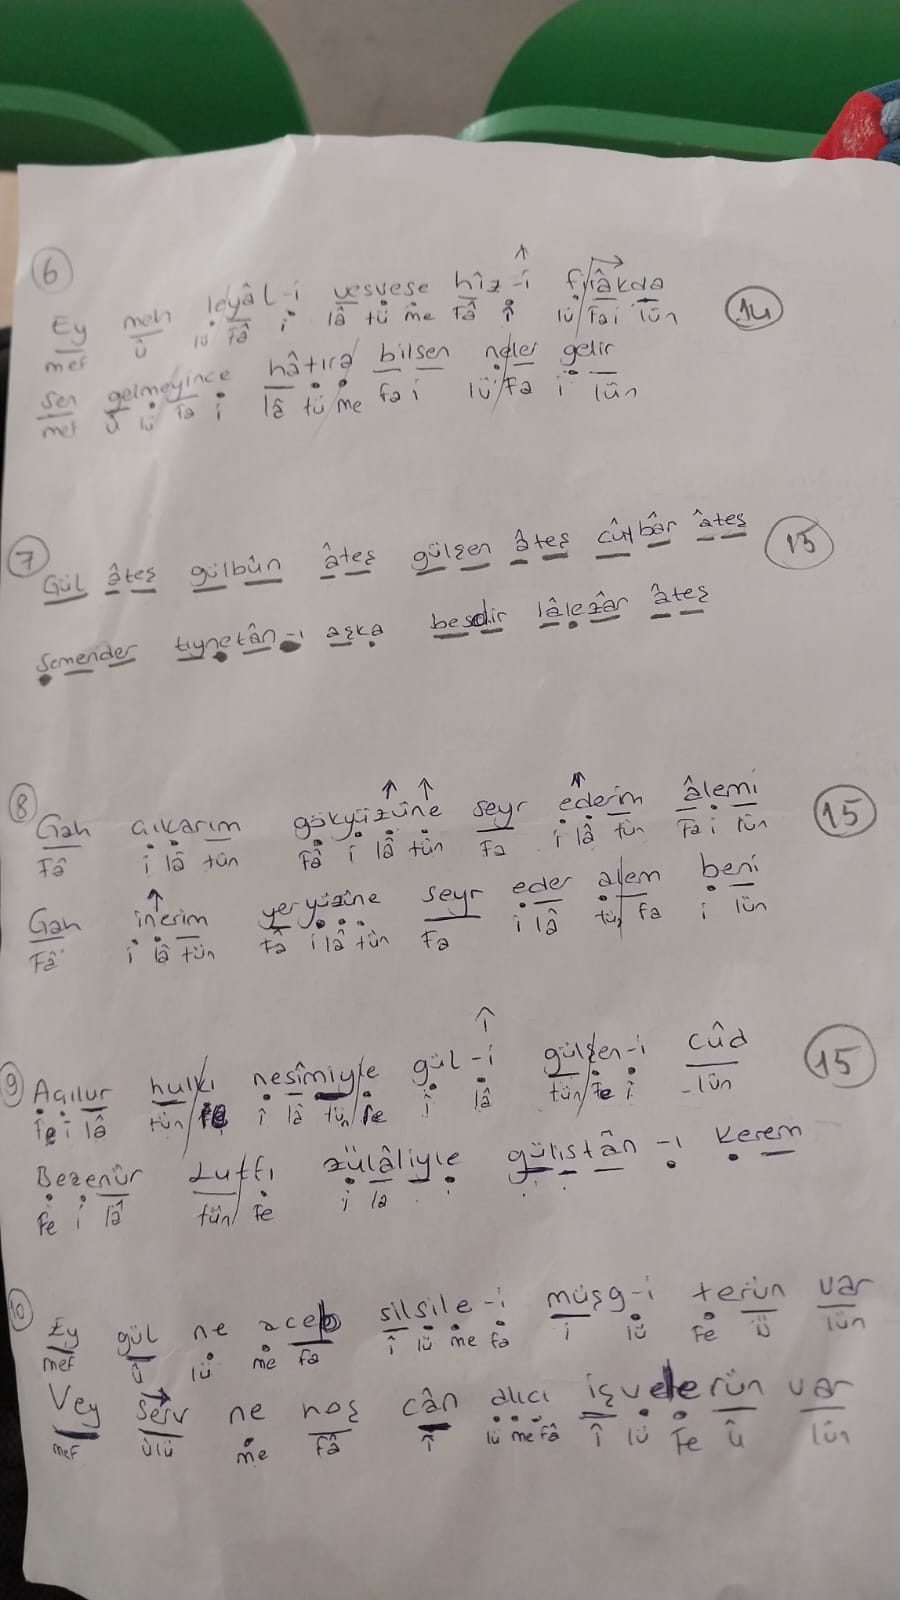 6
Ey meh leyâl-i vesvese hîz-i firâkda 14
mef û lü fâ i lâ tü me fâ î lü/fai lün
Sen gelmeyince hâtıra bilsen neler gelir
mef û lü fa i lâ tü me fa i lü/fa i lün
7
Gül âteş gülbün âteş gülşen âteş cûybâr âteş 15
Semender tıynetân-ı aşka besdir lâlezâr âteş
8
Gah çıkarım gökyüzüne seyr ederim âlemi 15
Fâ i lâ tün fâ i lâ tün fa i lâ tün Fa i lün
Gah inerim yeryüzüne seyr eder alem beni
Fâ i lâ tün fâ i lâ tün Fa i lâ tü, fa i lün
9 Açılur hulkı nesîmiyle gül-i gülşen-i cûd 15
fe i lâ tün/fe i lâ tün/fe i lâ tün/fe i lün
Bezenür lutfı zülâliyle gülistân-ı kerem
Fe i lâ tün/fe i la
10
Ey gül ne aceb silsile-i müşg-i terün var
mef û lü me fa î lü me fa i lü Fe û lün
Vey serv ne hoş cân alıcı işvelerün var
mef ûlü me fâ î lü me fâ î lü Fe û lün